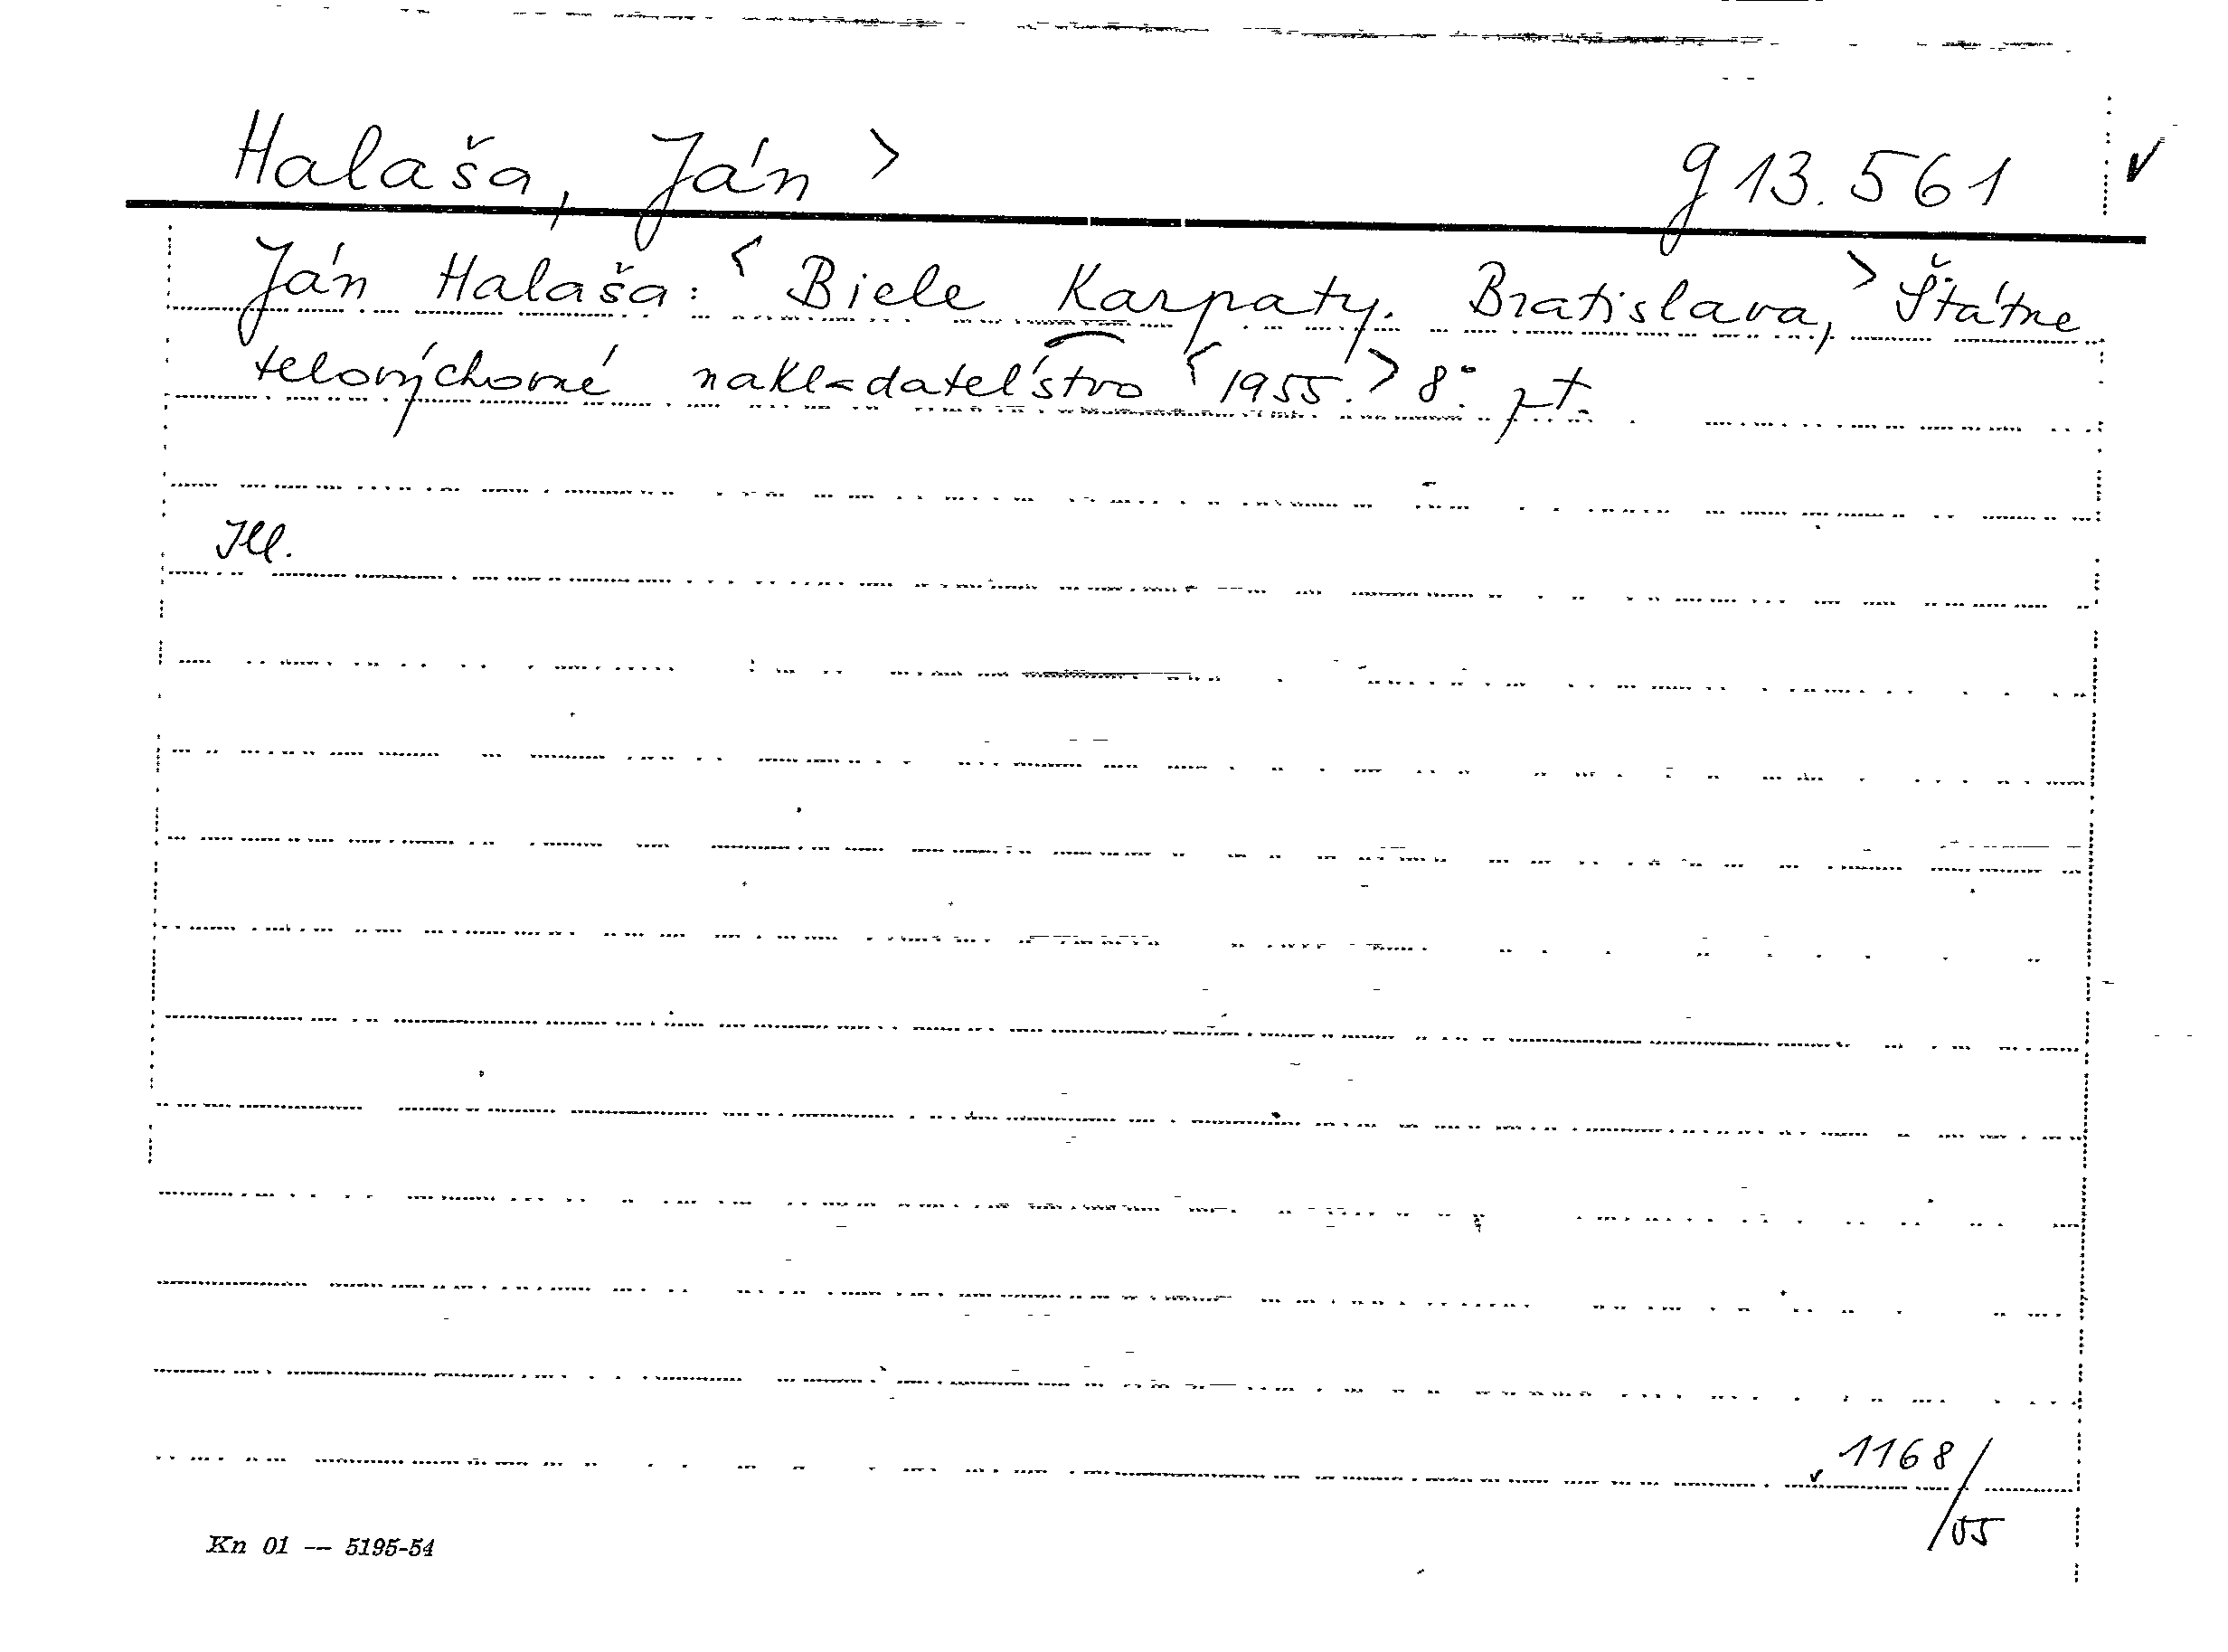 Halaša, Ján > g 13.561 ✓
Ján Halaša: < Biele Karpaty. Bratislava, > Štátne
telovýchovné nakladateľstvo < 1955. > 8° pt.
Ill.
1168/
/55
Kn 01 — 5195-54